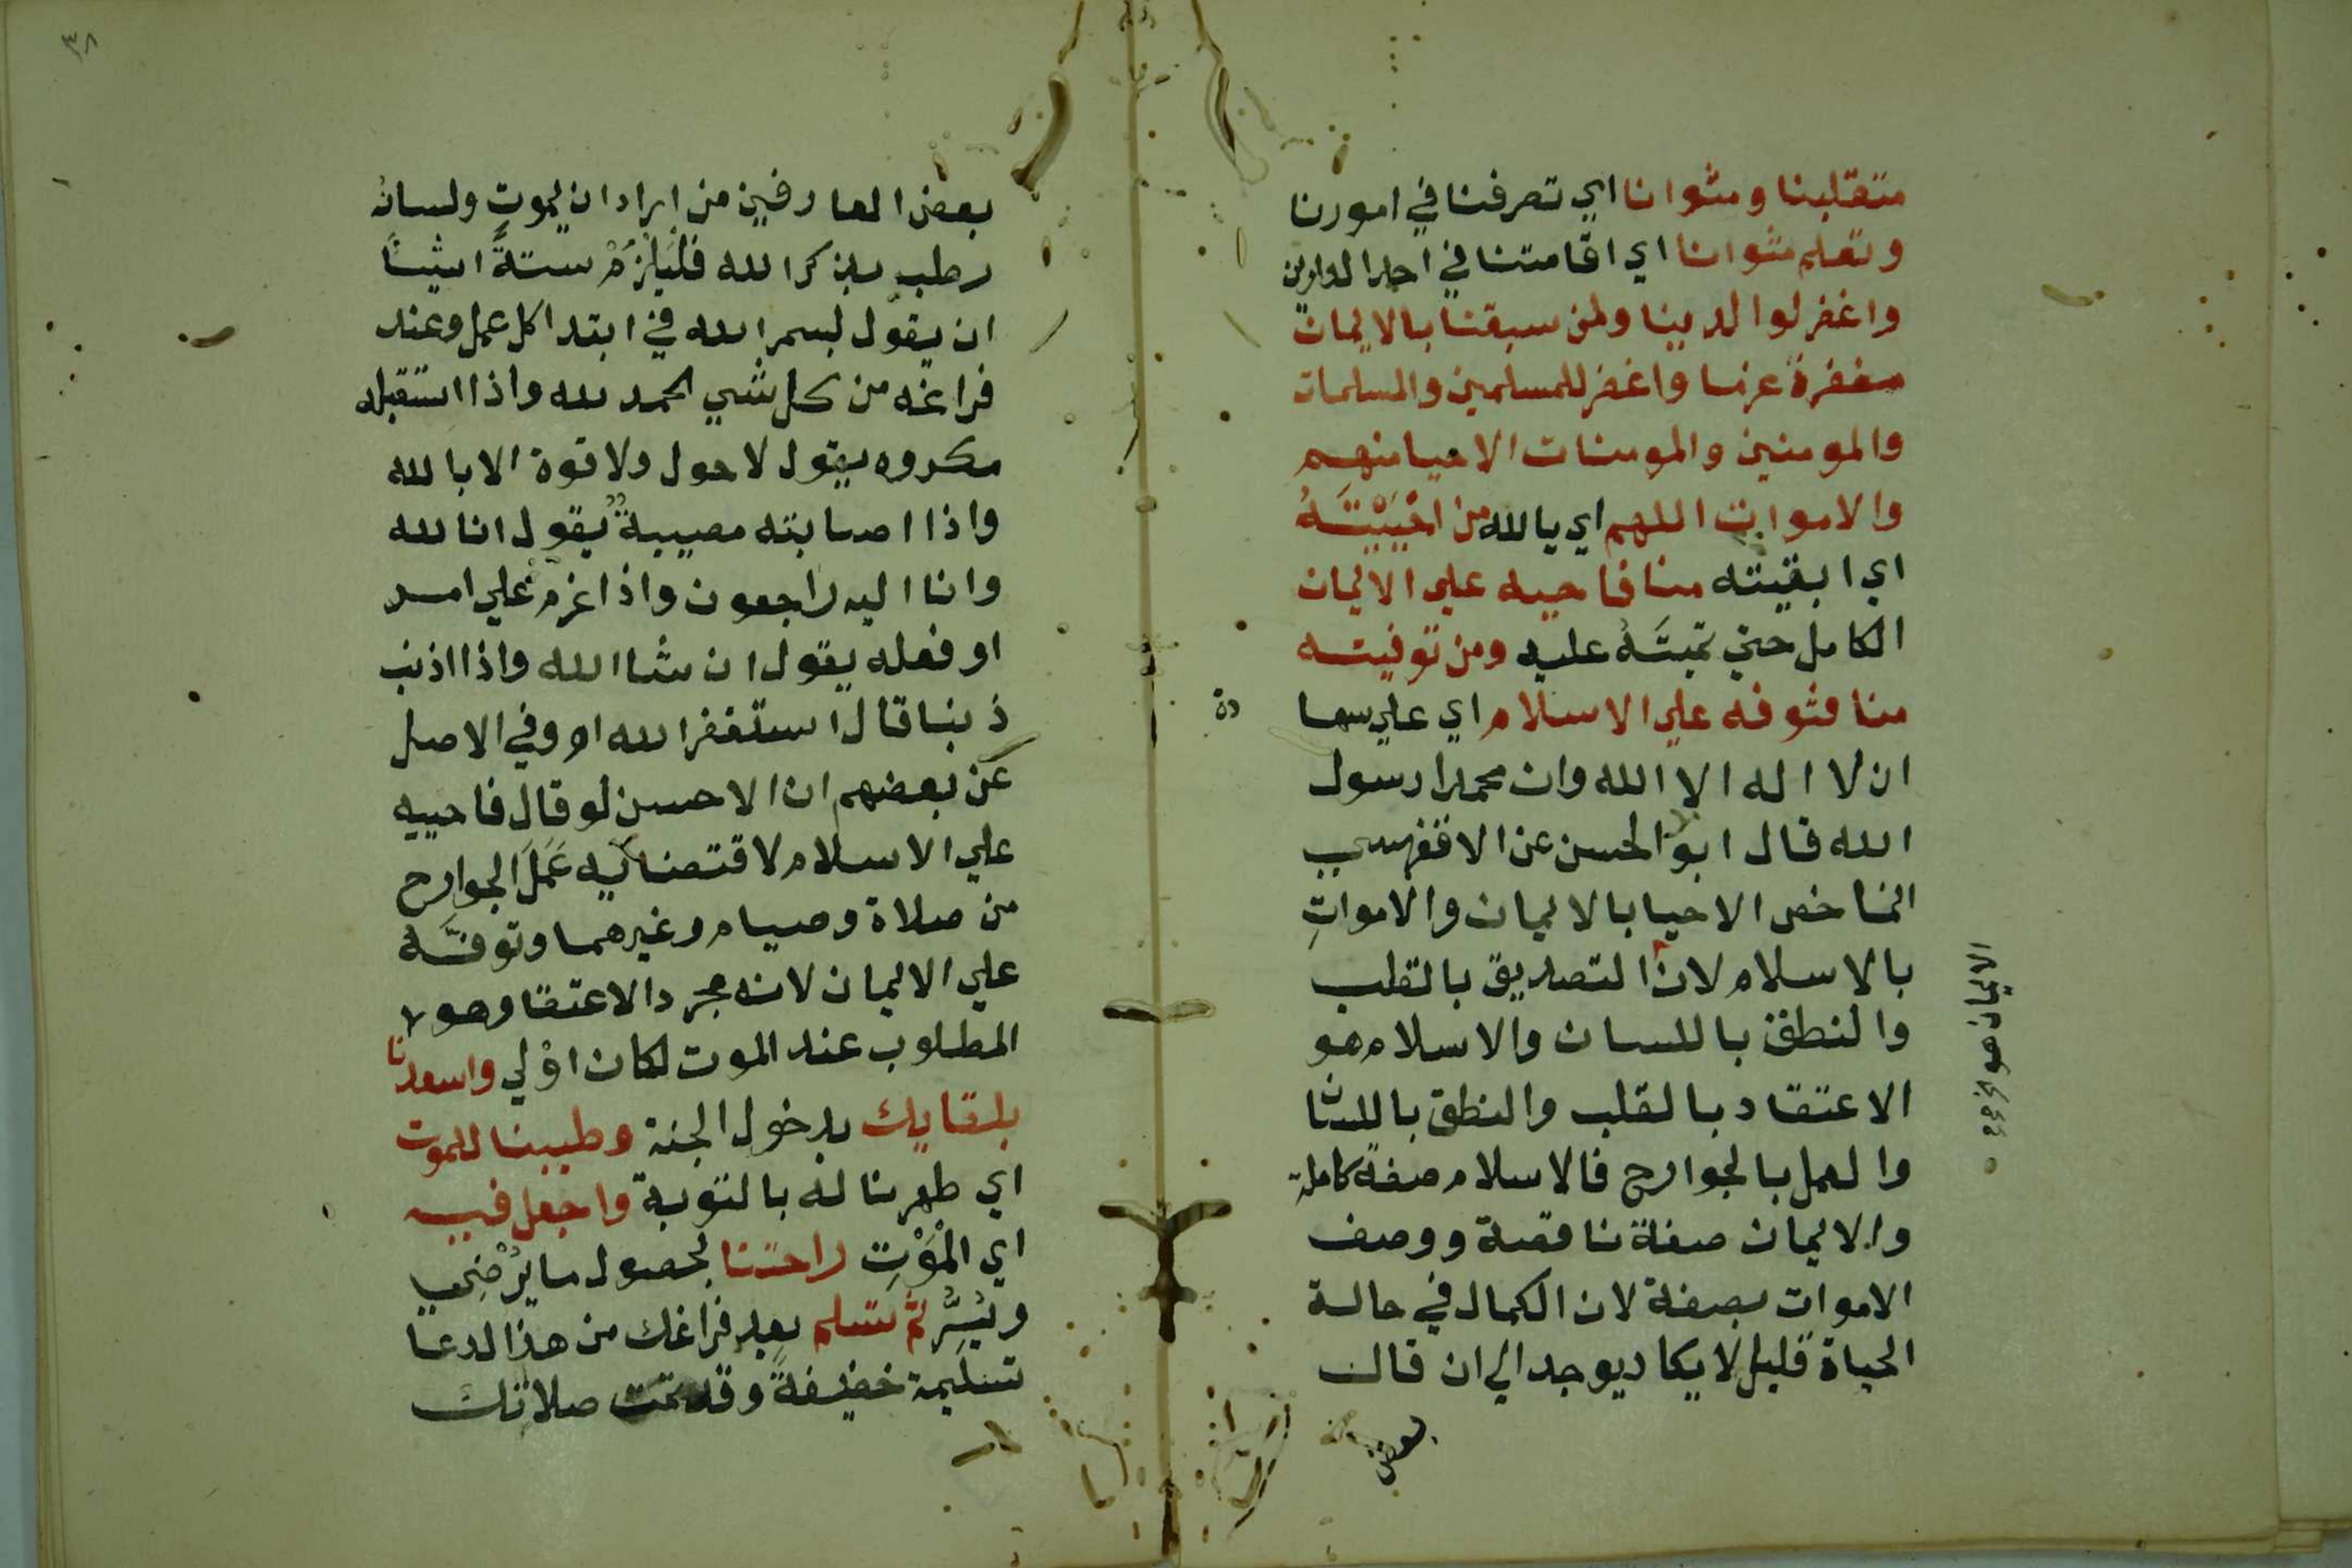 متقلبنا ومثوانا اي تصرفنا في امورنا
وتعلم مثوانا اي اقامتنا في احد الدارين
واغفر لوالدينا ولمن سبقنا بالايمان
مغفرة عزما واغفر للمسلمين والمسلمات
والمومنين والمومنات الاحيا منهم
والاموات اللهم اي يا الله من احْيَيْتَهُ
اي ابقيته منا فاحييه علي الايمان
الكامل حتي تميتَهُ عليه ومن توفيته
منا فتوفه علي الاسلام اي علي سها
دة
ان لا اله الا الله وان محمدا رسول
الله قال ابو الحسن عن الاقفهسي
انما خص الاحيا بالايمان والامواتِ
بالاسلام لان التصديق بالقلب
الايمان هو
والنطق باللسان والاسلام هو
الاعتقاد بالقلب والنطق باللسا
والعمل بالجوارح فالاسلام صفة كاملة
والايمان صفة ناقصة ووصف
الاموات بصفة لان الكمال في حالة
الحياة قليل لا يكاد يوجد الي ان قال
بعض
٣٨
بعض العارفين من اراد ان يموت ولسانه
رطب بذكر الله فليلزمْ ستةً اشيا
ان يقول بسم الله في ابتدا كل عمل وعند
فراغه من كل شي الحمد لله واذا استقبله
مكروه يقول لا حول ولا قوة الا بالله
واذا اصابته مصيبةٌ يقول انا لله
وانا اليه راجعون واذا عزم علي امر
او فعله يقول ان شا الله واذا اذنب
ذنبا قال استغفر الله اه وفي الاصل
عن بعضهم ان الاحسن لو قال فاحييه
علي الاسلام لاقتضائه عَمَلَ الجوارح
من صلاة وصيام وغيرهما وتوفَّه
علي الايمان لانه مجرد الاعتقا وهو
المطلوب عند الموت لكان اوْلي واسعدنا
بلقايك بدخول الجنة وطيبنا للموت
اي طهرنا له بالتوبة واجعل فيه
اي الْمَوْتِ راحتنا بحصول ما يُرْضي
ويَسُرُّ ثم تسلم بعد فراغك من هذا الدعا
تسليمة خفيفةً وقد تمت صلاتك